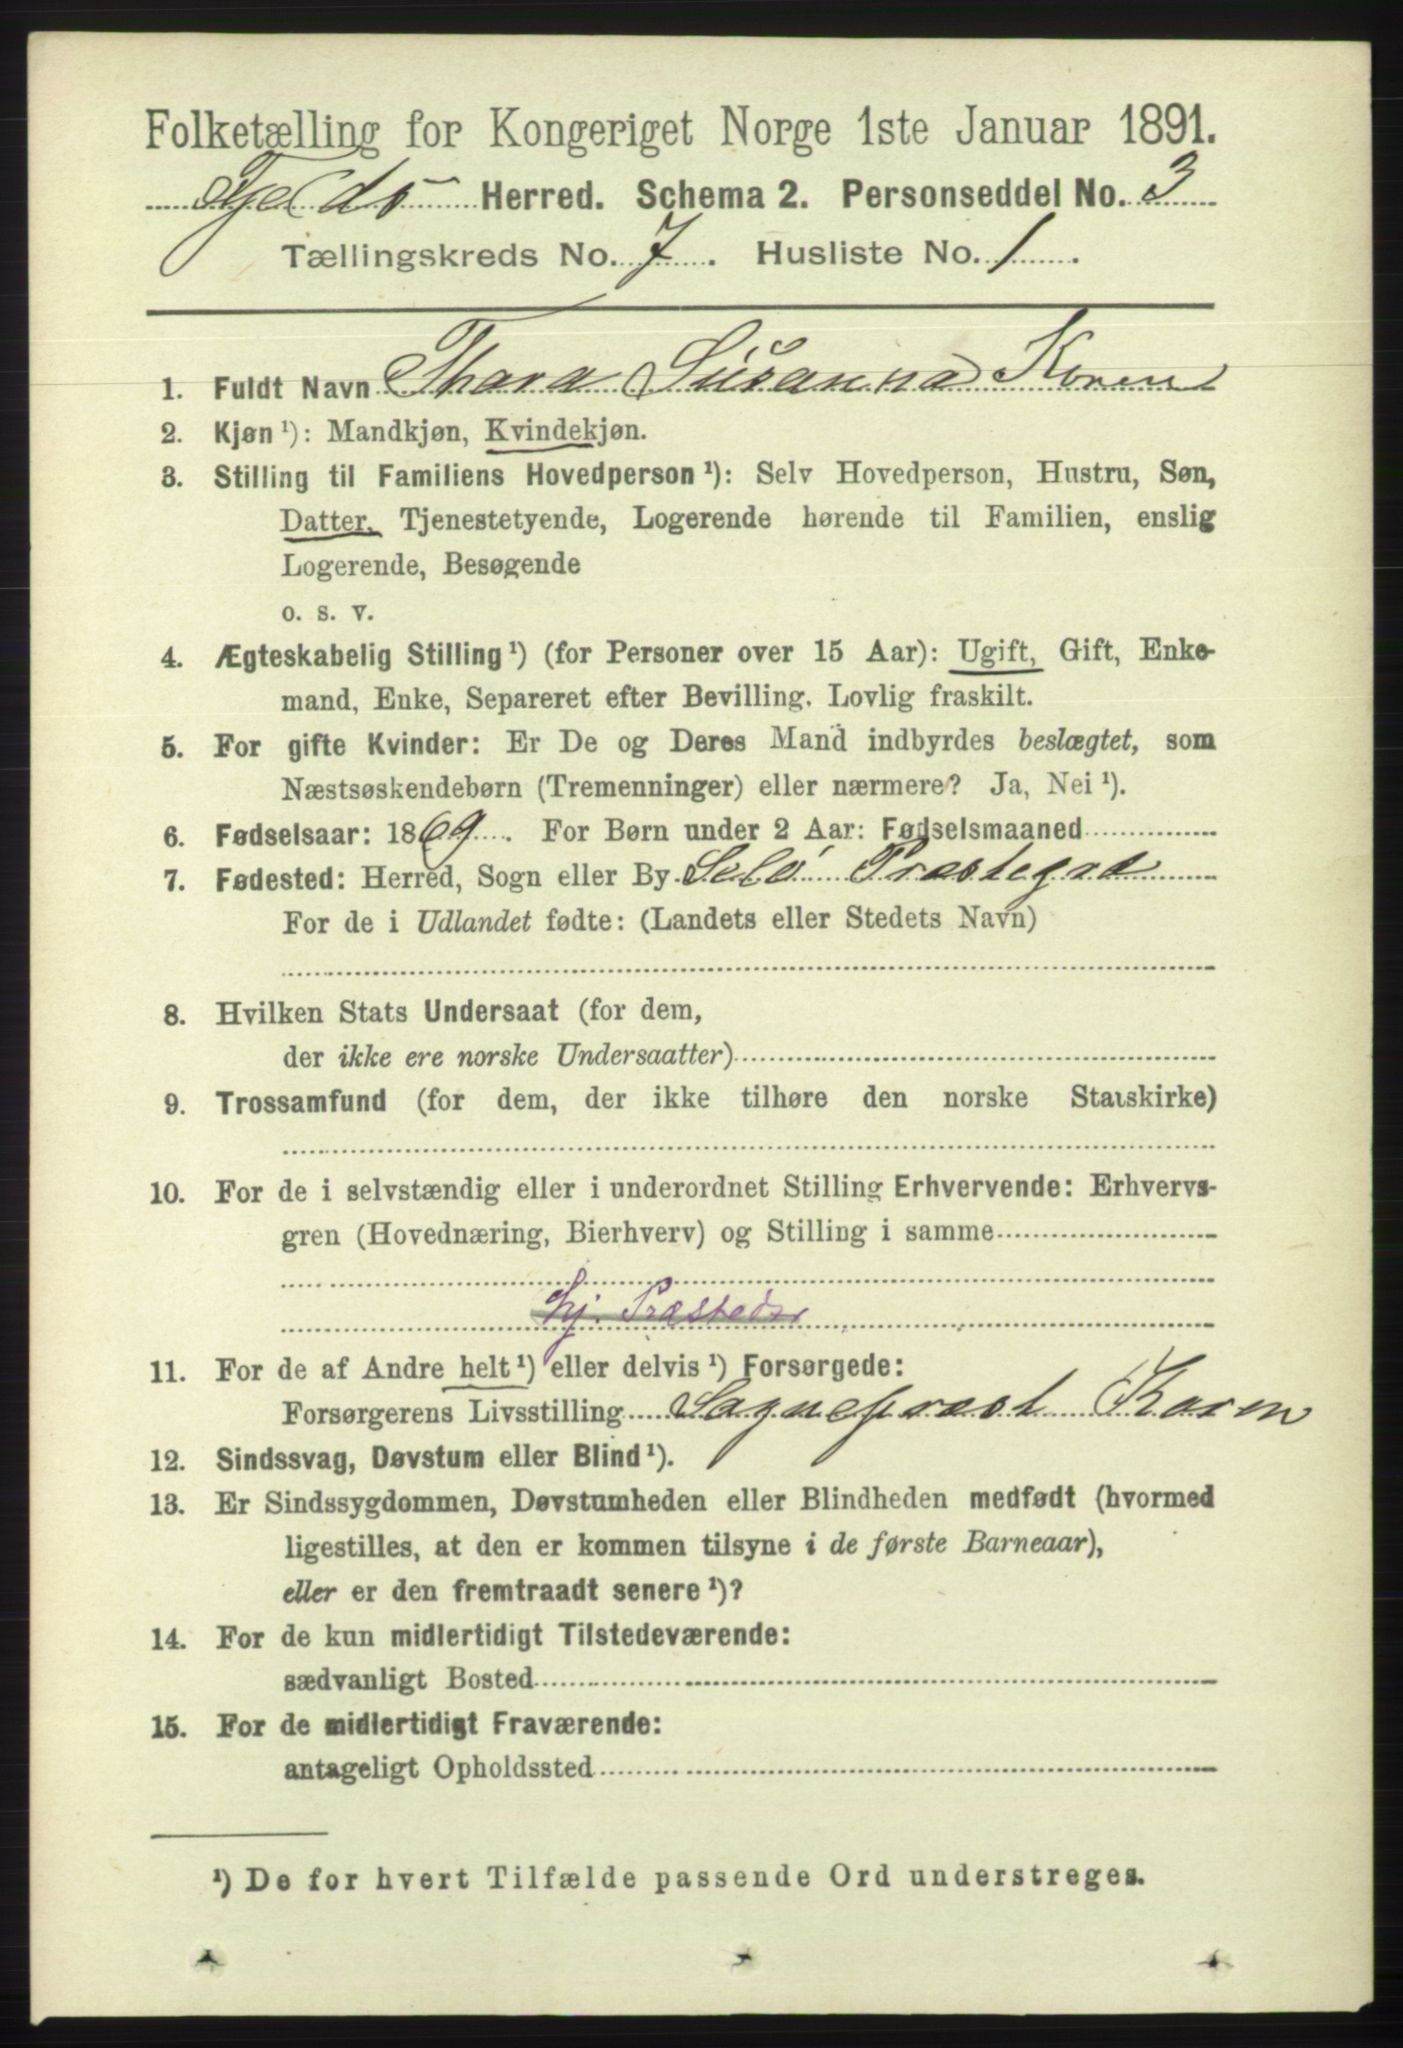 Folketælling for Kongeriget Norge 1ste Januar 1891.
Tjeldø Herred. Schema 2. Personseddel No. 3
Tællingskreds No. 7. Husliste No. 1.
1. Fuldt Navn Thora Susanna Koren
2. Kjøn ¹): Mandkjøn, Kvindekjøn.
3. Stilling til Familiens Hovedperson ¹): Selv Hovedperson, Hustru, Søn,
Datter, Tjenestetyende, Logerende hørende til Familien, enslig
Logerende, Besøgende
o. s. v.
4. Ægteskabelig Stilling ¹) (for Personer over 15 Aar): Ugift, Gift, Enke-
mand, Enke, Separeret efter Bevilling. Lovlig fraskilt.
5. For gifte Kvinder: Er De og Deres Mand indbyrdes beslægtet, som
Næstsøskendebørn (Tremenninger) eller nærmere? Ja, Nei ¹).
6. Fødselsaar: 1869. For Børn under 2 Aar: Fødselsmaaned
7. Fødested: Herred, Sogn eller By Selø Præstegrd
For de i Udlandet fødte: (Landets eller Stedets Navn)
8. Hvilken Stats Undersaat (for dem,
der ikke ere norske Undersaatter)
9. Trossamfund (for dem, der ikke tilhøre den norske Statskirke)
10. For de i selvstændig eller i underordnet Stilling Erhvervende: Erhvervs-
gren (Hovednæring, Bierhverv) og Stilling i samme
hj. Præsted.
11. For de af Andre helt ¹) eller delvis ¹) Forsørgede:
Forsørgerens Livsstilling Sognepræst Koren
12. Sindssvag, Døvstum eller Blind ¹).
13. Er Sindssygdommen, Døvstumheden eller Blindheden medfødt (hvormed
ligestilles, at den er kommen tilsyne i de første Barneaar),
eller er den fremtraadt senere ¹)?
14. For de kun midlertidigt Tilstedeværende:
sædvanligt Bosted
15. For de midlertidigt Fraværende:
antageligt Opholdssted
¹) De for hvert Tilfælde passende Ord understreges.